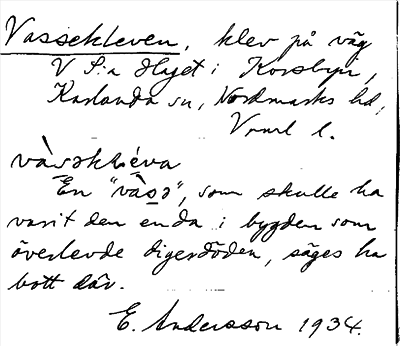 Vassekleven, klev på väg
V S:a Högt i Korsbyn,
Karlanda sn, Nordmarks hd,
Vrml l.
vàsəkléva
En "vàsə", som skulle ha
varit den enda i bygden som
överlevde digerdöden, säges ha
bott där.
E. Andersson 1934.